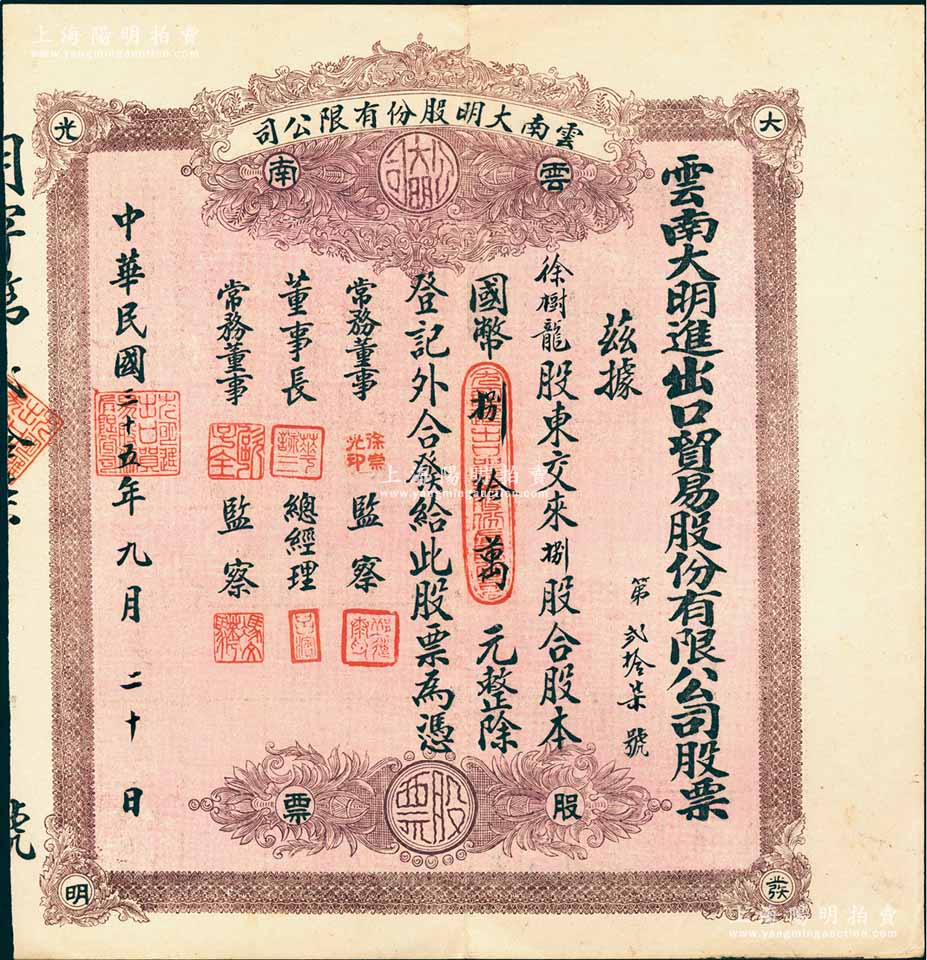 上海陽明拍賣
www.yangmingauction.com
雲南大明股份有限公司
大
光
雲
南
大明公司
雲南大明進出口貿易股份有限公司股票
第貳拾柒號
茲據
徐樹龍股東交來捌股合股本
國幣捌拾萬元整除
登記外合發給此股票為憑
常務董事
徐崇
光印
監察
董事長
總經理
常務董事
監察
中華民國三十五年九月二十日
號
股
票
股票
發
明
上海陽明拍賣
www.yangmingauction.com
上海陽明拍賣
www.yangmingauction.com